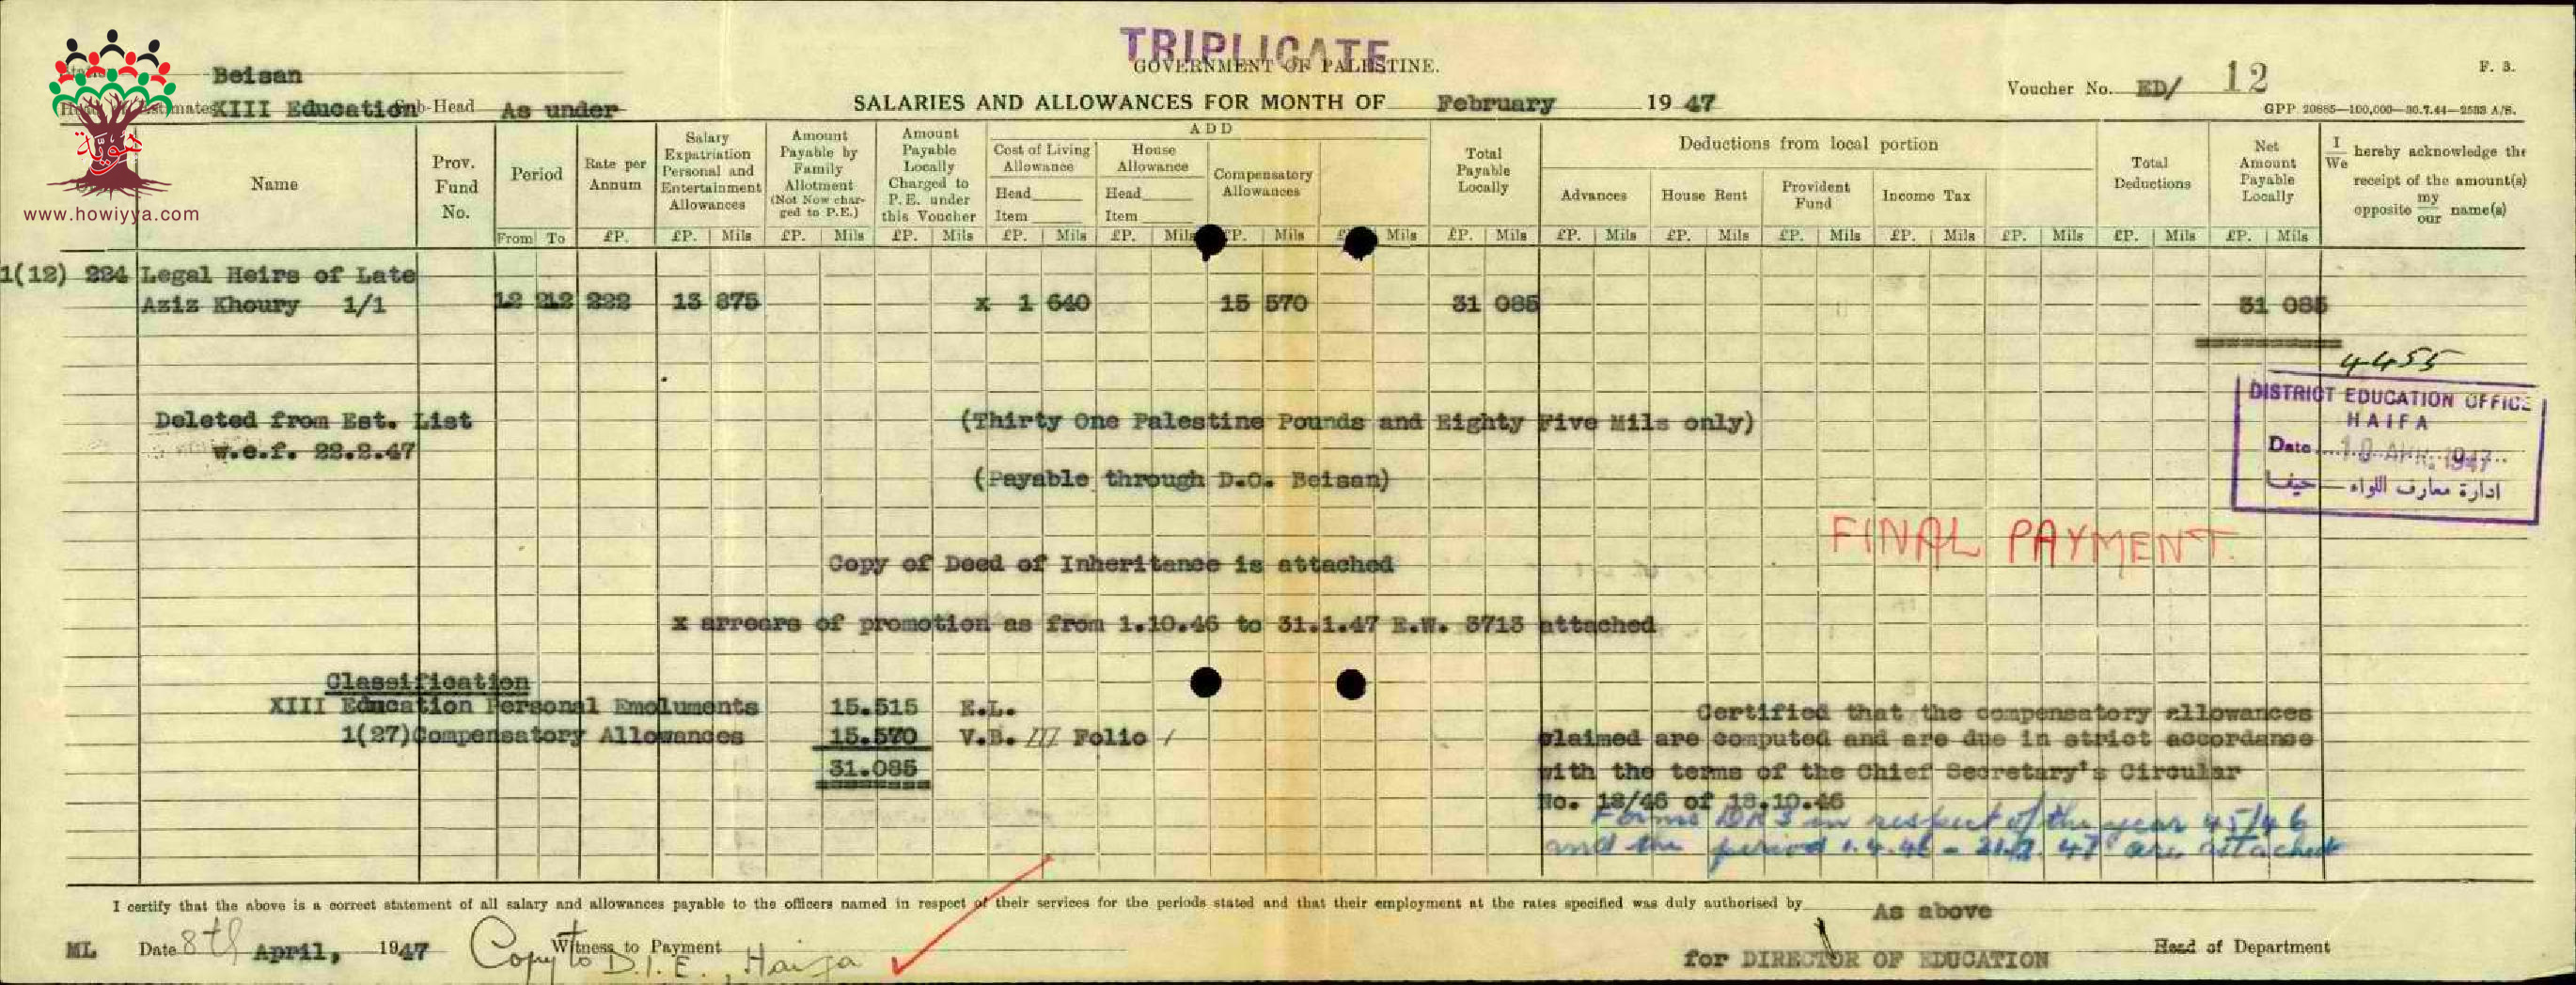 TRIPLICATE
GOVERNMENT OF PALESTINE.
F. 3.
Beisan
XIII Education Sub-Head As under
SALARIES AND ALLOWANCES FOR MONTH OF February 19 47
Voucher No. ED/ 12
GPP 20885—100,000—30.7.44—2533 A/S.
هويّة
www.howiyya.com
Name
Prov. Fund No.
Period
From To
Rate per Annum
£P.
Salary Expatriation Personal and Entertainment Allowances
£P. Mils
Amount Payable by Family Allotment (Not Now charged to P.E.)
£P. Mils
Amount Payable Locally Charged to P.E. under this Voucher
£P. Mils
ADD
Cost of Living Allowance
Head
Item
£P. Mils
House Allowance
Head
Item
£P. Mils
Compensatory Allowances
£P. Mils
Mils
Total Payable Locally
£P. Mils
Deductions from local portion
Advances
£P. Mils
House Rent
£P. Mils
Provident Fund
£P. Mils
Income Tax
£P. Mils
£P. Mils
Total Deductions
£P. Mils
Net Amount Payable Locally
£P. Mils
I We hereby acknowledge the
receipt of the amount(s)
opposite my our name(s)
1(12) 224 Legal Heirs of Late
Aziz Khoury 1/1 222 13 875 x 1 640 15 570 31 085 31 085
4455
DISTRICT EDUCATION OFFICE
HAIFA
Date APR. 1947
ادارة معارف اللواء — حيفا
Deleted from Est. List
w.e.f. 22.2.47
(Thirty One Palestine Pounds and Eighty Five Mils only)
(Payable through D.O. Beisan)
FINAL PAYMENT.
Copy of Deed of Inheritance is attached
x arrears of promotion as from 1.10.46 to 31.1.47 E.W. 3713 attached
Classification
XIII Education Personal Emoluments 15.515 E.L.
1(27)Compensatory Allowances 15.570 V.B. III Folio 1
31.085
Certified that the compensatory allowances
claimed are computed and are due in strict accordance
with the terms of the Chief Secretary's Circular
No. 18/46 of 18.10.46
Forms in respect of the year 45/46
and the period 1.4.46 - 47 are attached
I certify that the above is a correct statement of all salary and allowances payable to the officers named in respect of their services for the periods stated and that their employment at the rates specified was duly authorised by As above
ML Date 8th April, 1947
Witness to Payment
Copy to D.I.E., Haifa
for DIRECTOR OF EDUCATION
Head of Department